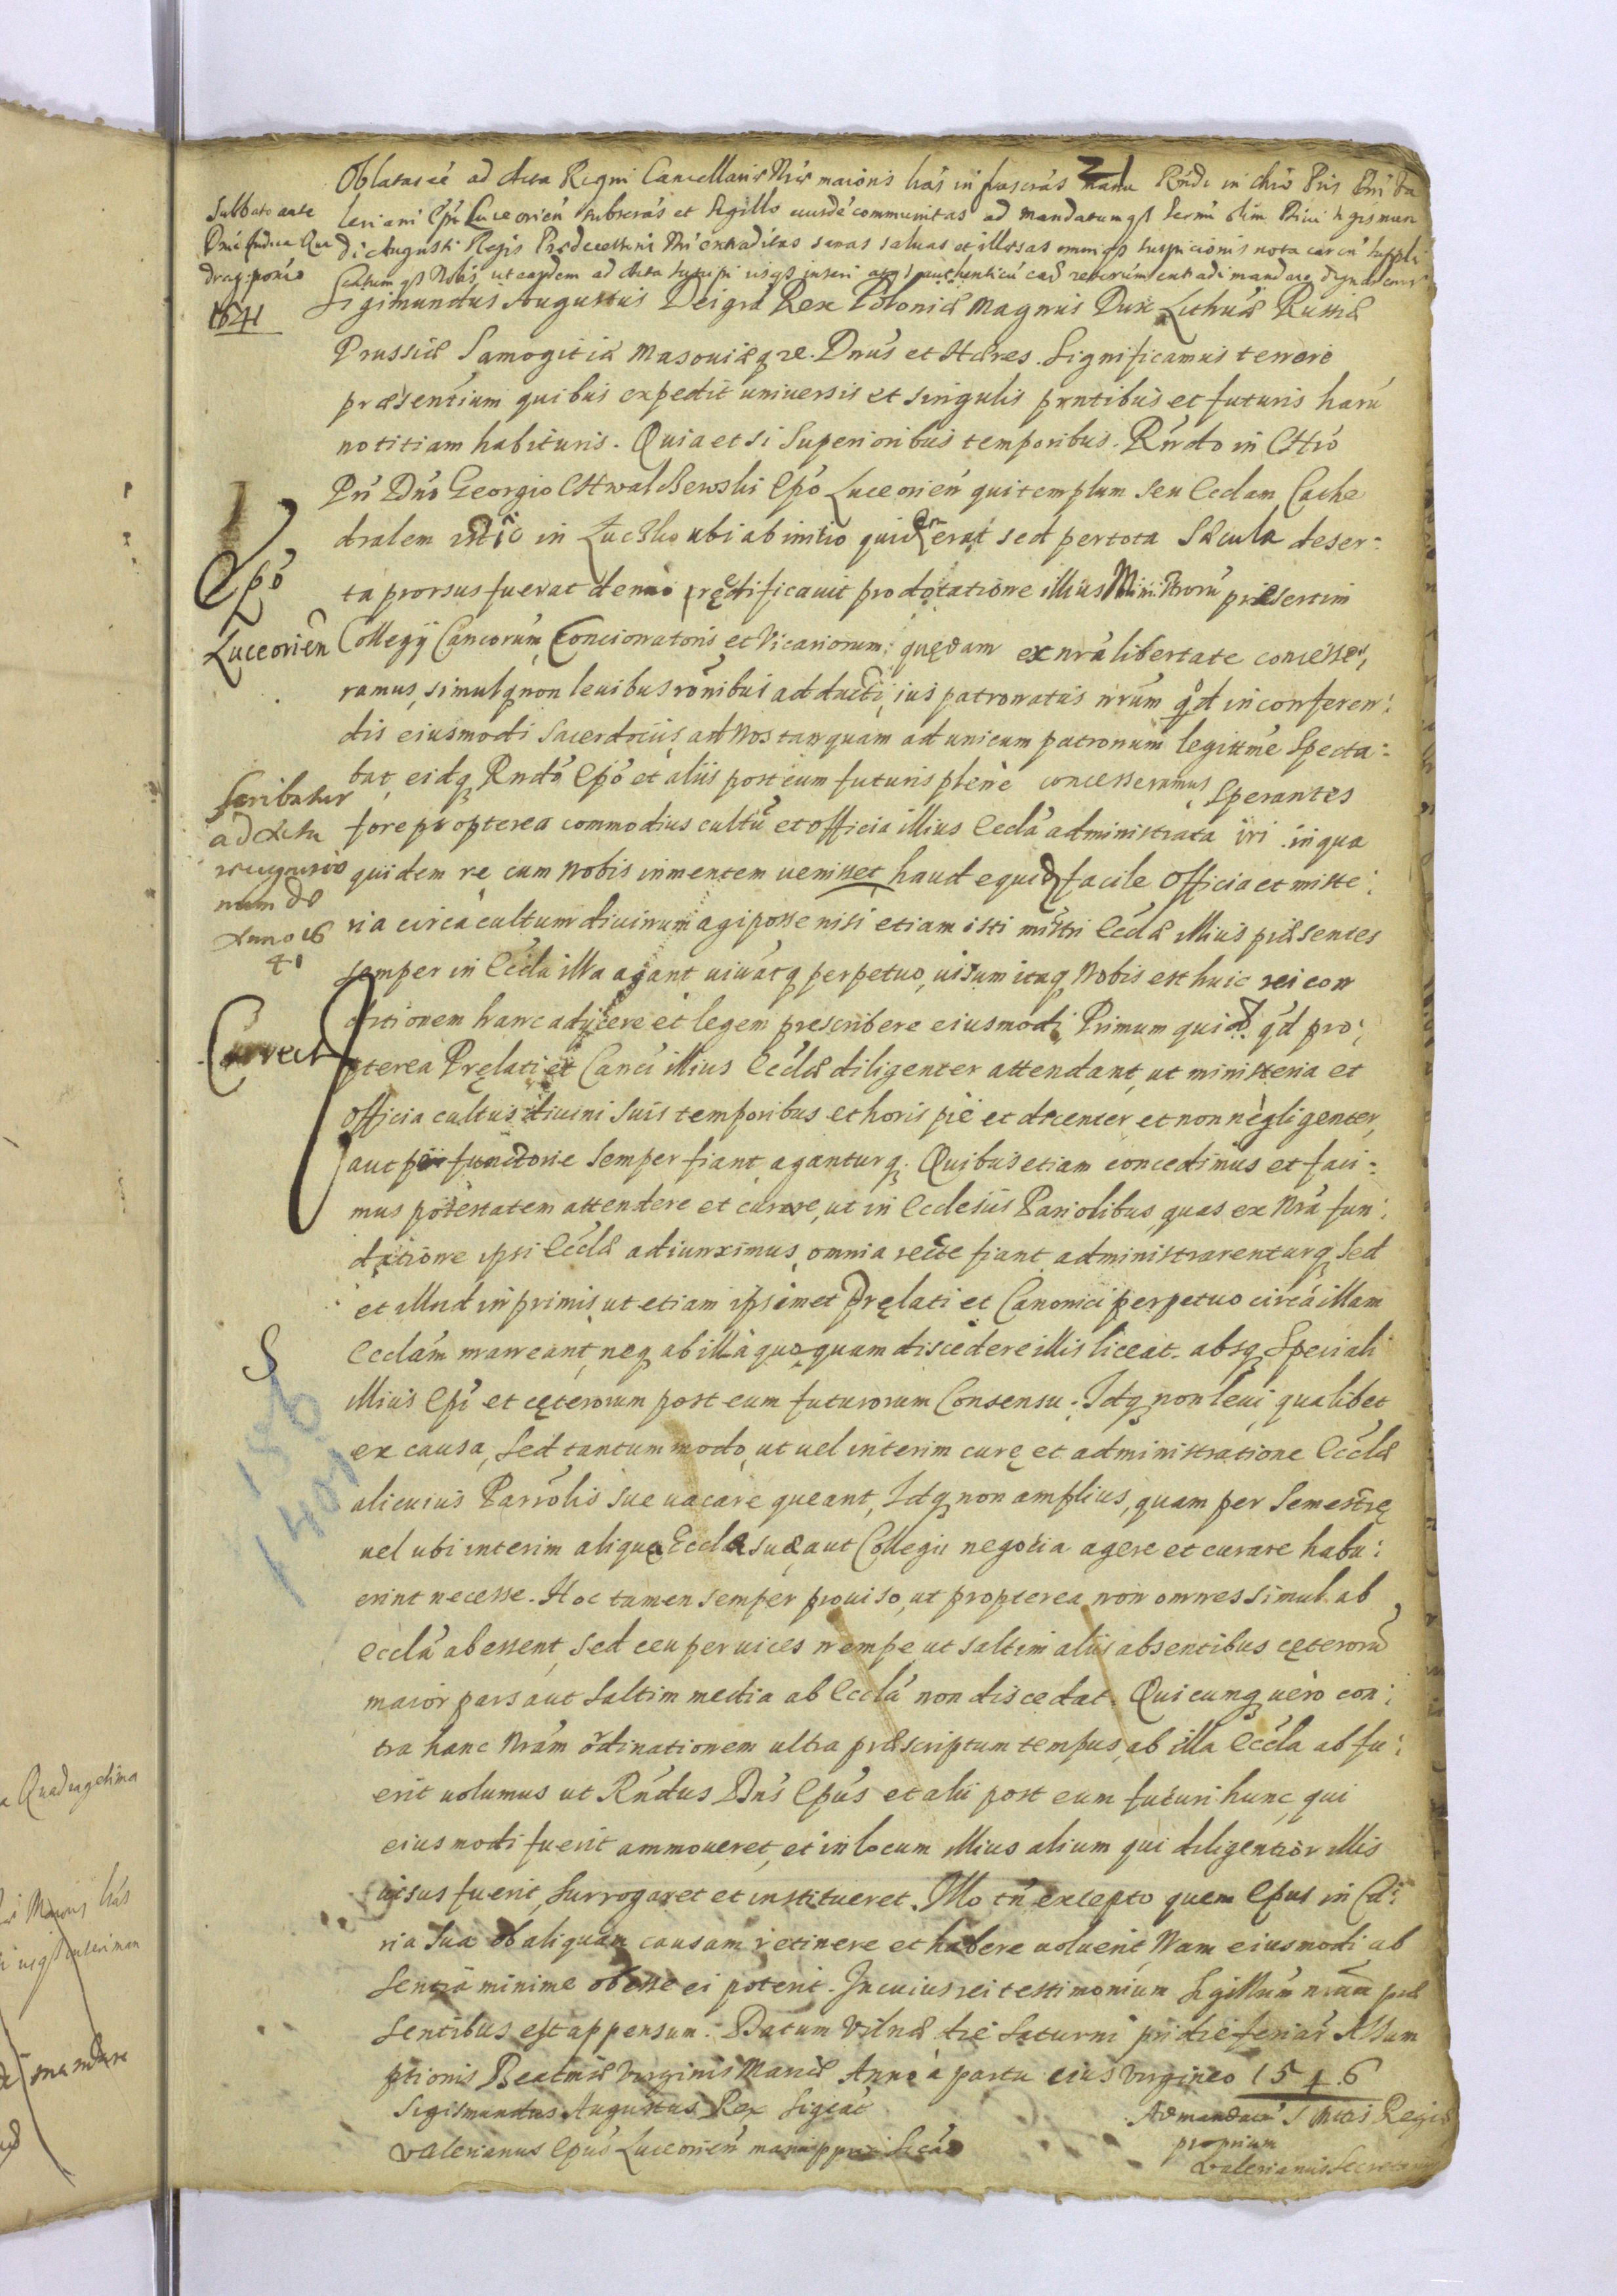 Oblatas eē ad Acta Regni Cancellariæ Nræ maioris lrās infrascrās manu Rndi in Chrō Pris Dni Va
leriani Epi Luceorien subscrās et sigillo eiusdē communitas ad mandatumqꝫ Sermi olim Diui Sigismun
di Augusti Regis Prædecessoris Nri extraditas sanas saluas et illæsas omniqꝫ suspicionis nota caren suppli
catumqꝫ Nobis, ut easdem ad Acta suscipi
Sabbato ante
Dnicā Judica Qua
drag: ponio
1641
Sigimundus Augustus Dei grā Rex Poloniæ Magnus Dux Lithuæ Russiæ
Prussiæ Samogitiæ Masouiæqꝫ re. Dnus et Hæres. Significamus tenore
præsentium quibus expedit uniuersis et singulis pntibus et futuris harū
notitiam habituris. Quia etsi Superioribus temporibus. Rndo in Chrō
Pri Dnō Georgio Chwalchewski Epō Luceorien qui templum seu Ecclam Cathe
dralem in Luczko ubi ab initio quidē erat sed per tota Sæcula deser:
Epō
Luceorien
ta prorsus fuerat denuo reędificauit pro dotatione illius Ministrorū præsertim
Collegij Cancorum, Concionatoris et Vicariorum, quędam ex nrā libertate concesse
ramus, simulqꝫ non leuibus rōnibus adducti, ius patronatus nrum qd in conferen:
dis eiusmodi Sacerdotiis, ad Nos tanquam ad unicum patronum legittime Specta:
bat, eidqꝫ Rndo Epō et aliis post eum futuris plene concesseramus, Sperantes
Scribatur
ad Acta
anno 16
41
fore propterea commodius cultū et officia illius Ecclā administrata iri in qua
quidem re cum Nobis in mentem uenisset haud equidē facile officia et miste:
ria circa cultum diuinum agi posse nisi etiam isti mistri Ecclæ illius præsentes
semper in Eccla illa agant uiuātqꝫ perpetuo, uisum itaqꝫ Nobis est huic rei con
ditionem hanc adijcere et legem prescribere eiusmodi Primum quidē qd pro:
Correct
pterea Pręlati et Canci illius Ecclæ diligenter attendant, ut ministeria et
officia cultus diuini suis temporibus et horis piè et decenter, et non negligenter,
aut perfunctorie semper fiant, aganturqꝫ. Quibus etiam concedimus et faci:
mus potestatem attendere et curare, ut in Ecclesiis Pariolibus, quas ex Nrā fun:
datione ipsi Ecclæ adiunximus, omnia recte fiant administrarenturqꝫ Sed
et illud in primis, ut etiam ipsimet Pręlati et Canonici perpetuo circa illam
Ecclam maneant, neqꝫ ab illa quoquam discedere illis liceat, absqꝫ Speciali
S
156
1401
illius Epi et cęterorum post eum futurorum Consensu. Idqꝫ non leui qualibet
ex causa, Sed tantummodo, ut uel interim curę et administratione Ecclæ
alicuius Parrolis sue uacare queant, Idqꝫ non amplius, quam per Semestrę
uel ubi interim aliqua Ecclæ suæ aut Collegii negotia agere et curare habu:
erint necesse. Hoc tamen semper prouiso, ut propterea non omnes simul ab
Eccla abessent, sed ceu per uices nempe, ut saltim aliis absentibus cęterorū
maior pars aut saltim media ab Ecclā non discedat. Quicunqꝫ uèro con:
tra hanc Nrām ordinationem ultra præscriptum tempus, ab illa Eccla abfu:
erit uolumus ut Rndus Dns Epus et alii post eum futuri hunc, qui
eiusmodi fuerit ammoueret, et in locum illius alium qui diligentior illis
uisus fuerit, surrogaret et institueret. Illo tn excepto quem Epus in Cu:
ria sua ob aliquam causam retinere et habere uoluerit, Nam eiusmodi ab
sentia minime obesse ei poterit. In cuius rei testimonium Sigillum nrum præ
sentibus est appensum. Datum Vilnæ die Saturni pridie feriar Assum
ptionis Beatmæ Virginis Mariæ Anno à partu eius Virgineo 1546
Sigismundus Augustus Rex
Ad mandatū S Mtis Regiæ
proprium
Valerianus Secretarius
Valerianus Epus Luceorien manu ppria